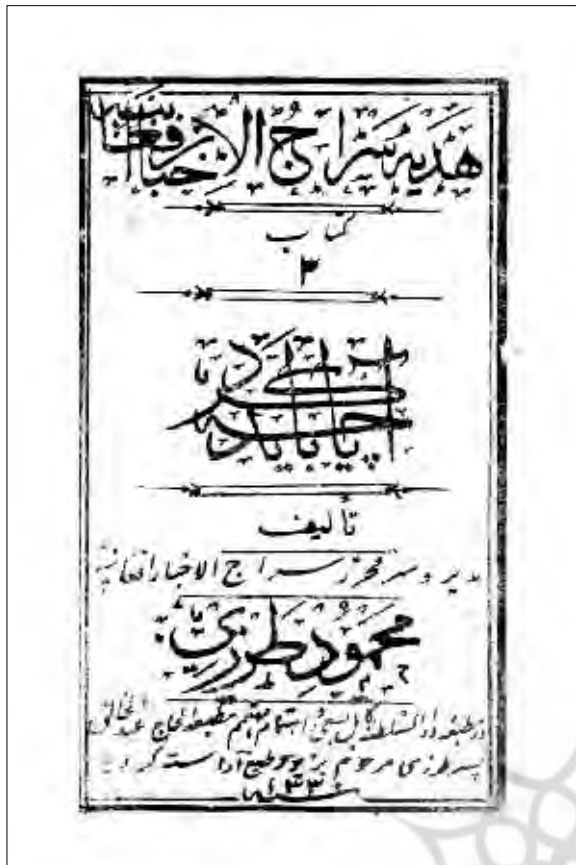 هدیهٔ سراج الاخبار افغانیه
کتاب
۳
آیا چه باید کرد
تألیف
مدیر و سرمحرر سراج الاخبار افغانیه
محمود طرزی
در مطبعه دارالسلطنه کابل بسعی و اهتمام مهتمم مطبعه الحاج عبدالخالق
پسر طرزی مرحوم بزیور طبع آراسته گردید
۱۳۳۰